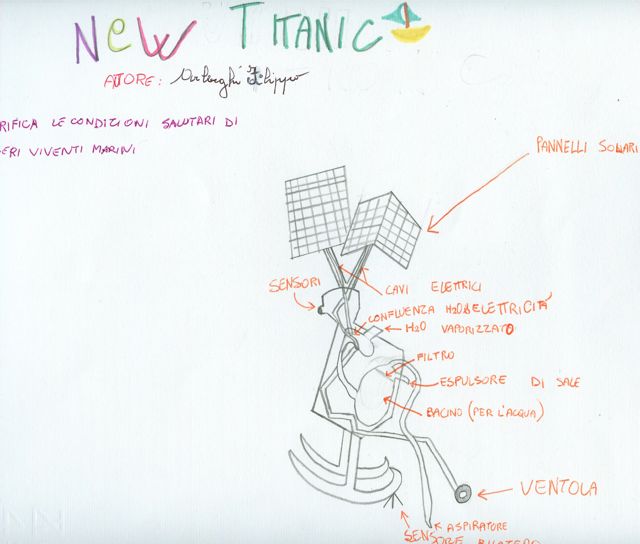 NEW TITANIC
AUTORE: Filippo
RIFICA LE CONDIZIONI SALUTARI DI
ERI VIVENTI MARINI
PANNELLI SOLARI
SENSORI
CAVI ELETTRICI
CONFLUENZA H2O & ELETTRICITÀ
H2O VAPORIZZATO
FILTRO
ESPULSORE DI SALE
BACINO (PER L'ACQUA)
VENTOLA
ASPIRATORE
SENSORE